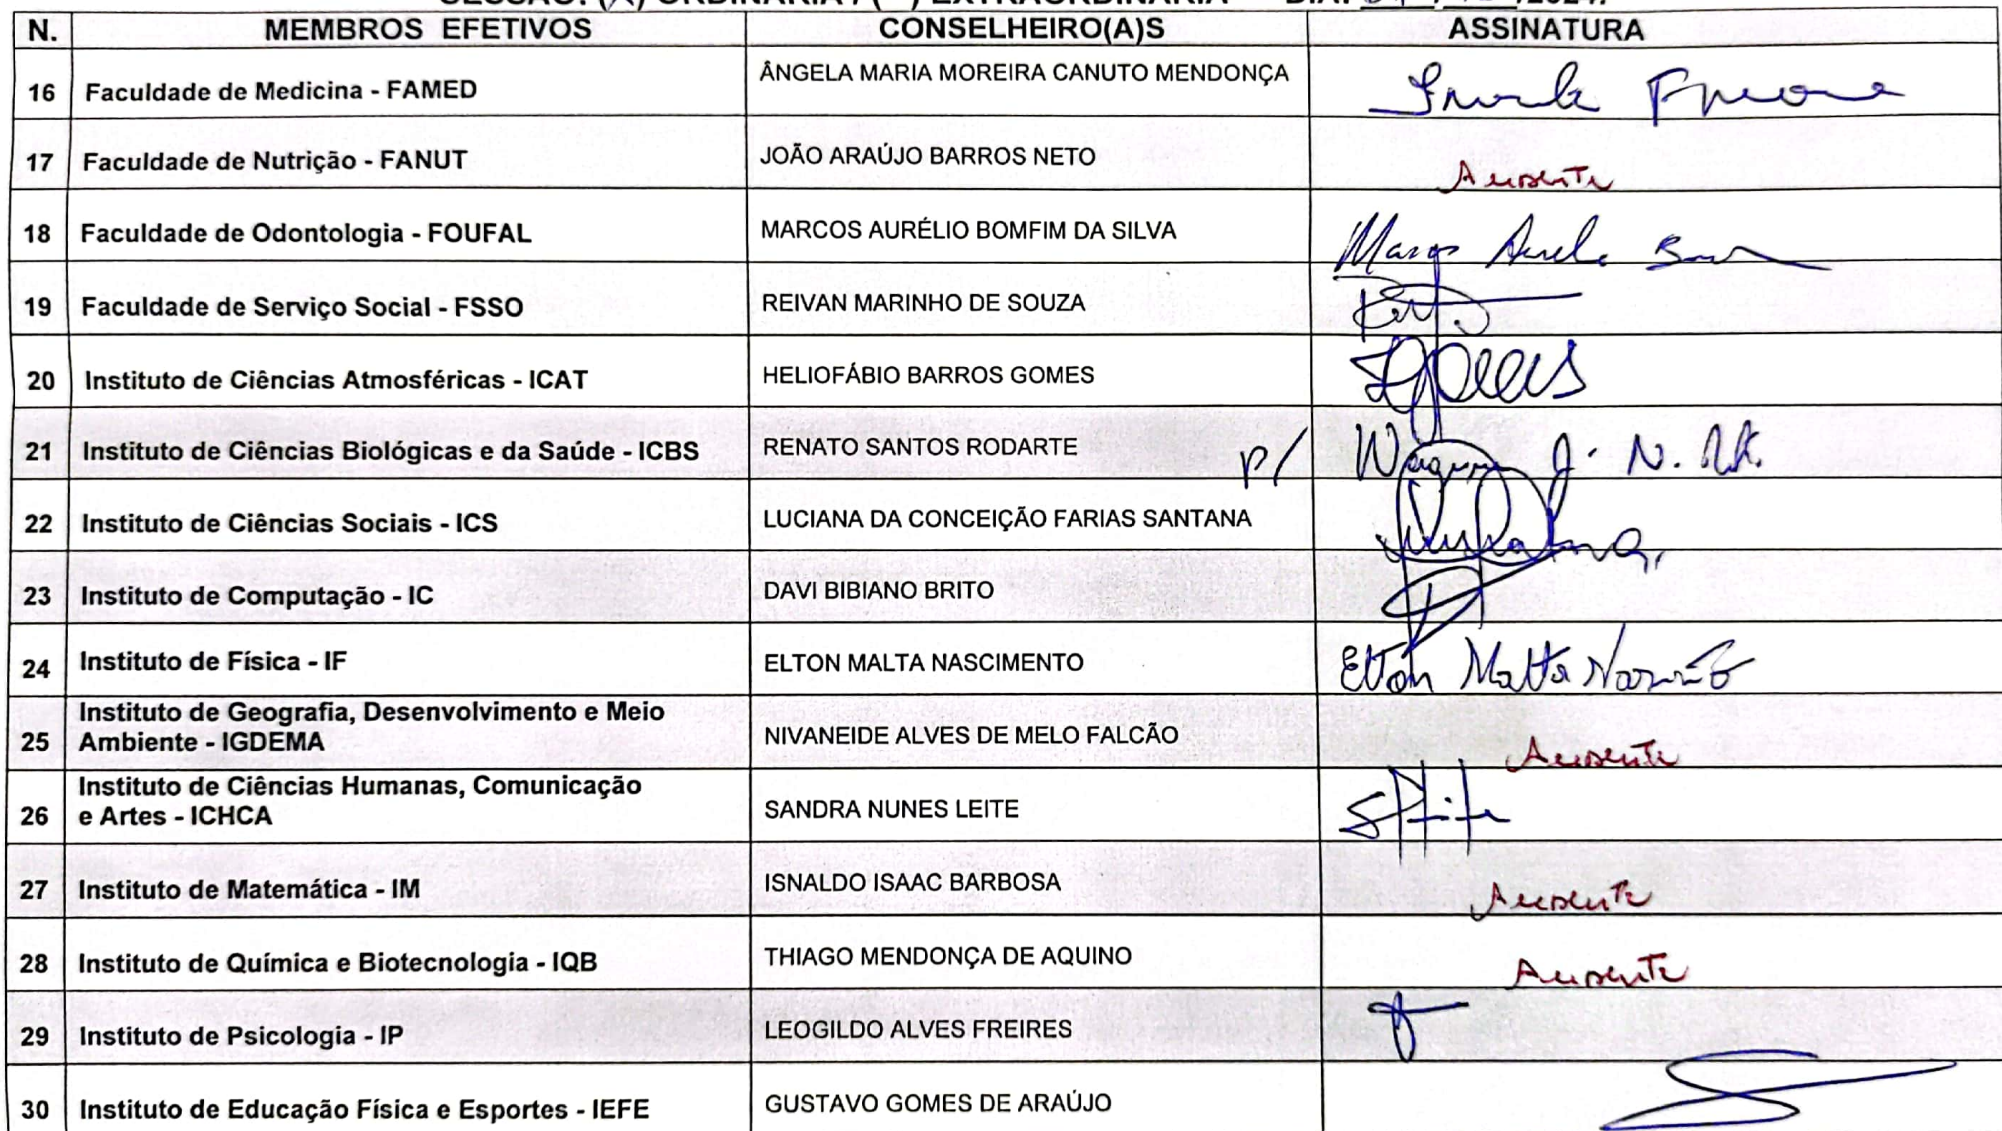 SESSÃO: (X) ORDINÁRIA / ( ) EXTRAORDINÁRIA DIA:
N. MEMBROS EFETIVOS CONSELHEIRO(A)S ASSINATURA
16 Faculdade de Medicina - FAMED ÂNGELA MARIA MOREIRA CANUTO MENDONÇA
17 Faculdade de Nutrição - FANUT JOÃO ARAÚJO BARROS NETO Ausente
18 Faculdade de Odontologia - FOUFAL MARCOS AURÉLIO BOMFIM DA SILVA
19 Faculdade de Serviço Social - FSSO REIVAN MARINHO DE SOUZA
20 Instituto de Ciências Atmosféricas - ICAT HELIOFÁBIO BARROS GOMES
21 Instituto de Ciências Biológicas e da Saúde - ICBS RENATO SANTOS RODARTE p/
22 Instituto de Ciências Sociais - ICS LUCIANA DA CONCEIÇÃO FARIAS SANTANA
23 Instituto de Computação - IC DAVI BIBIANO BRITO
24 Instituto de Física - IF ELTON MALTA NASCIMENTO Elton Malta
Instituto de Geografia, Desenvolvimento e Meio
25 Ambiente - IGDEMA NIVANEIDE ALVES DE MELO FALCÃO Ausente
Instituto de Ciências Humanas, Comunicação
26 e Artes - ICHCA SANDRA NUNES LEITE
27 Instituto de Matemática - IM ISNALDO ISAAC BARBOSA Ausente
28 Instituto de Química e Biotecnologia - IQB THIAGO MENDONÇA DE AQUINO Ausente
29 Instituto de Psicologia - IP LEOGILDO ALVES FREIRES
30 Instituto de Educação Física e Esportes - IEFE GUSTAVO GOMES DE ARAÚJO